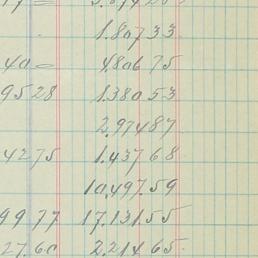 1.80733
40= 4.80675
9528 1.38053
2.97487
4275 1.43768
10,497.59
9977 17.131.55
27.60 2.214.65